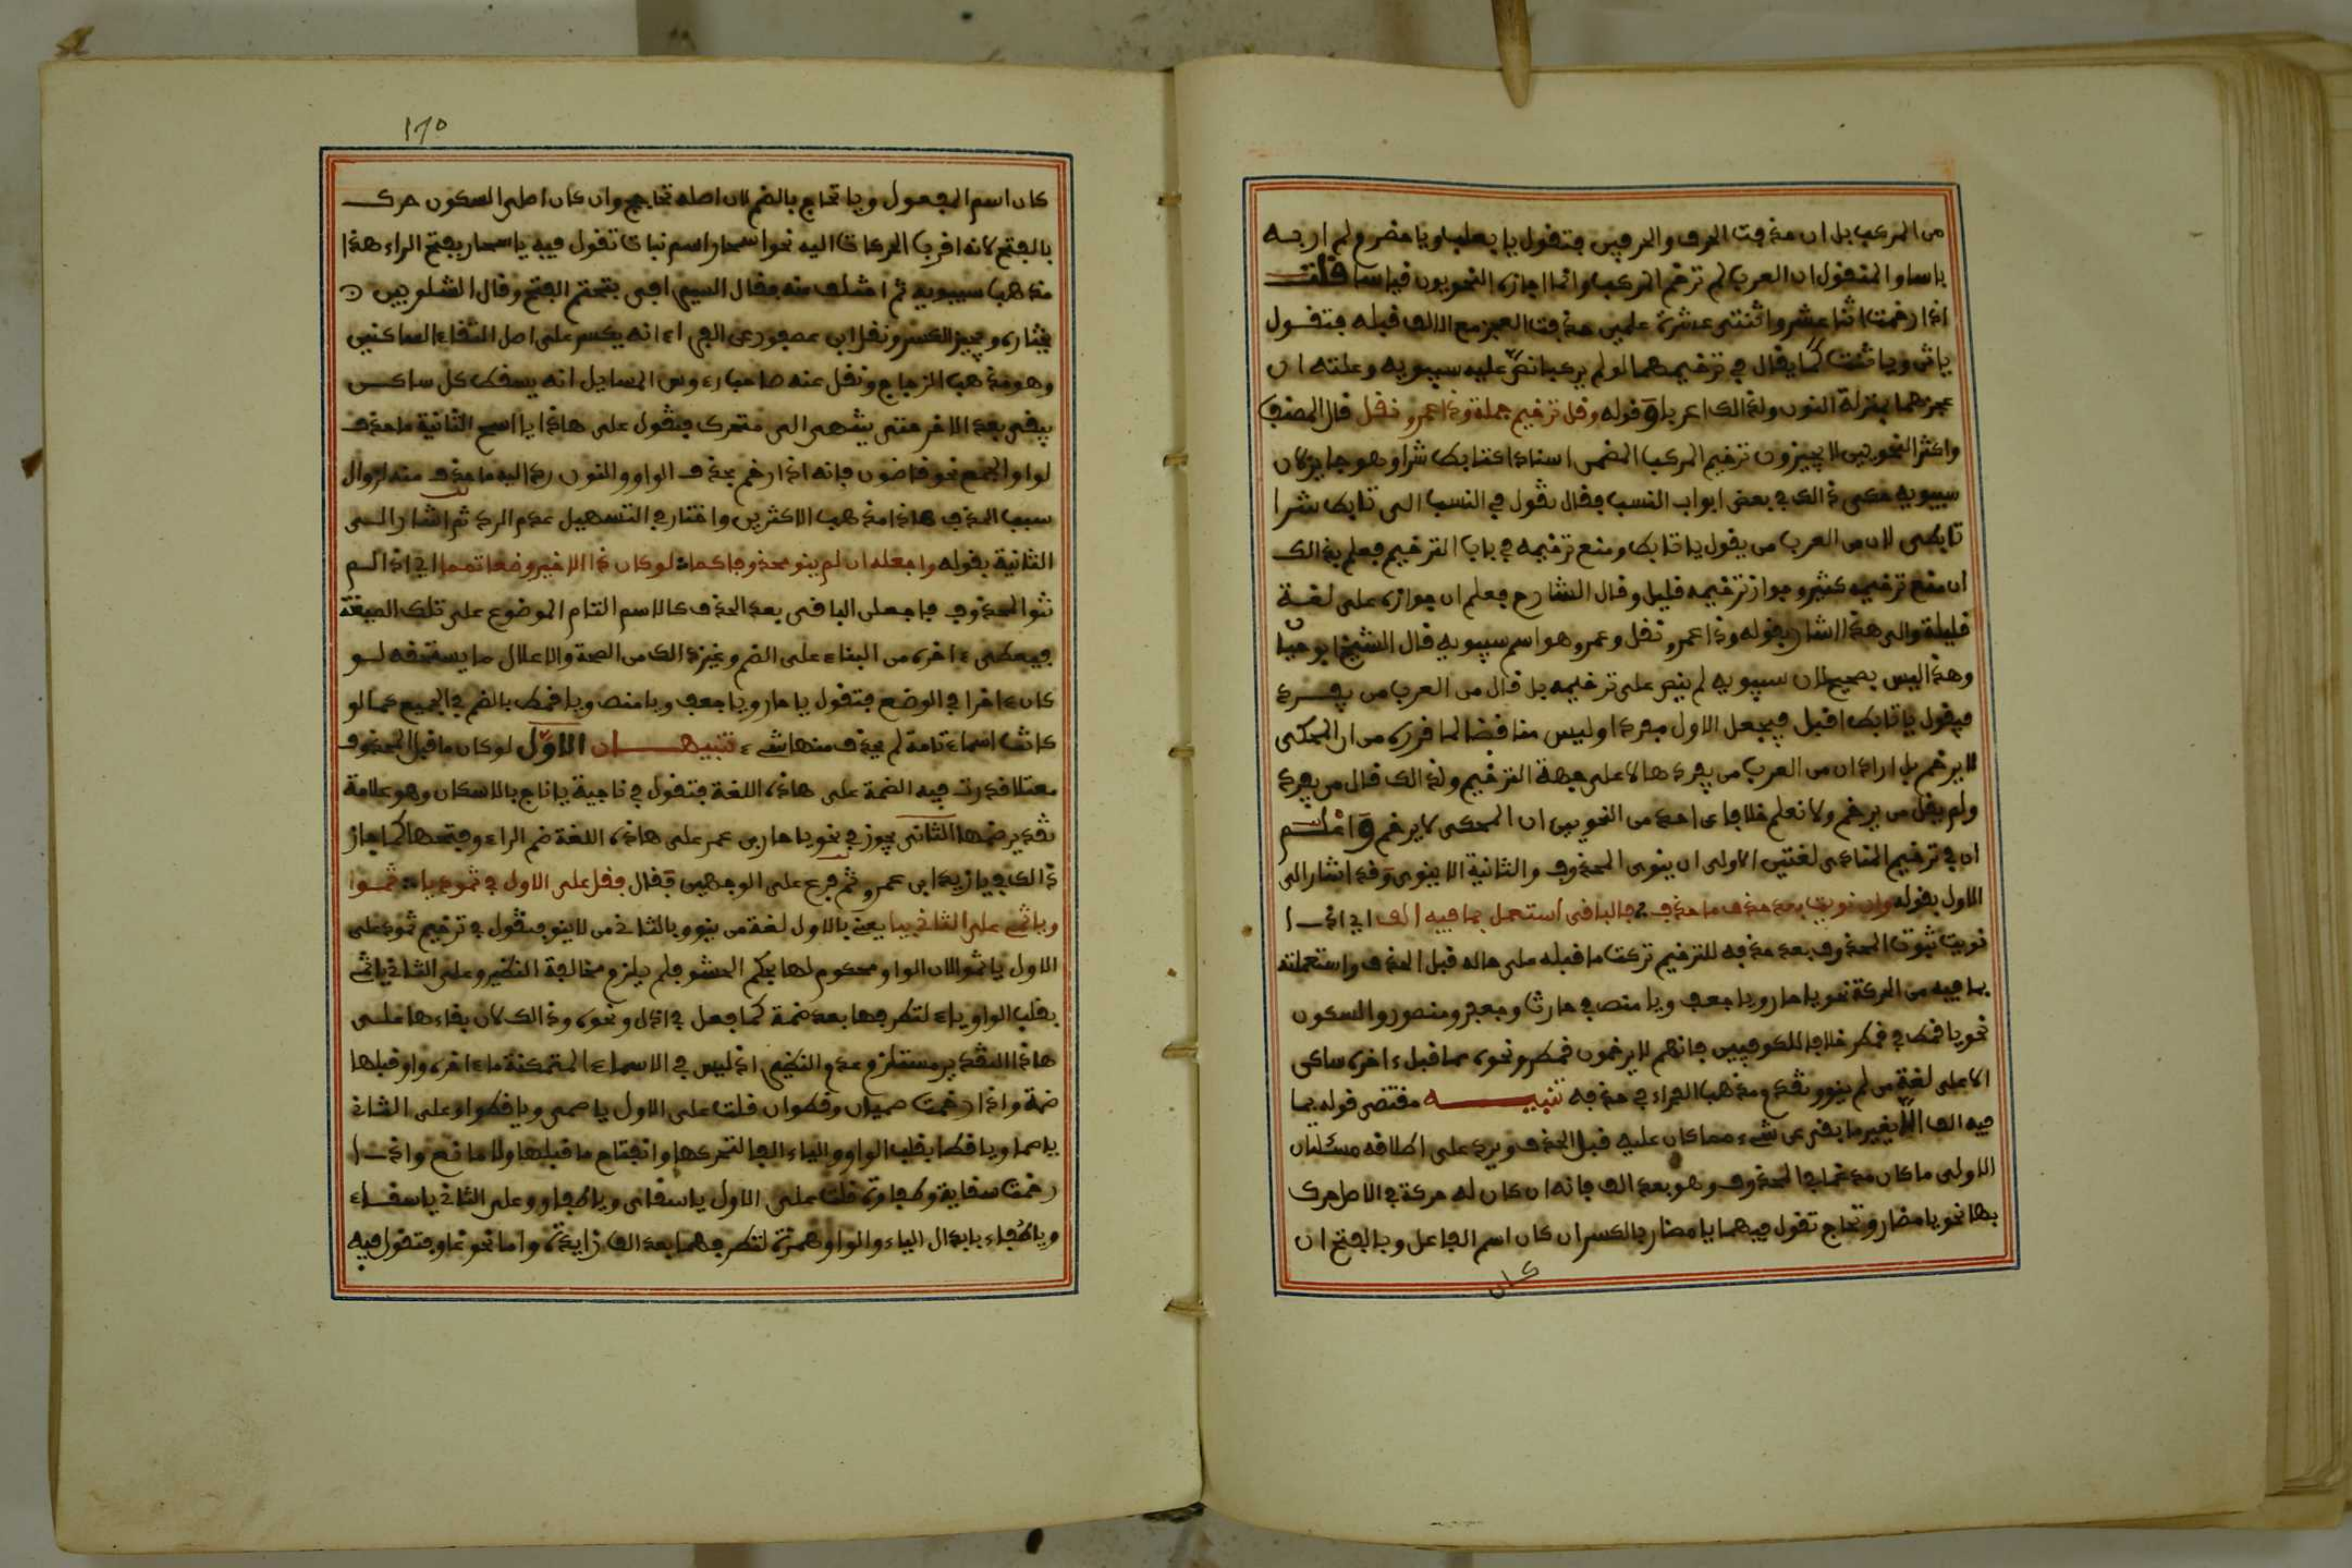 من المركب بل ان حذفت الحرف والحرفين فتقول يا بعلب ويا حضرم ولم اره به
ياسا والمنقول ان العرب لم ترخم المركب وانما اجازه النحويون قياسا قلت
اذا رخمت اثنا عشر واثنتى عشرة علمين حذفت العجز مع الالف قبله فتقول
ياثن وياثنت كما يقال في ترخيمهما لو لم يركبا نص عليه سيبويه وعلته ان
عجزهما بمنزلة النون ولذالك اعربا وقوله وقل ترخيم جملة وذا عمرو نقل قال المصنف
واكثر النحويين لا يجيزون ترخيم المركب المضمن اسنادا كتابط شرا وهو جايز لان
سيبويه حكى ذالك في بعض ابواب النسب فقال تقول في النسب الى تابط شرا
تابطى لان من العرب من يقول يا تابط ومنع ترخيمه في باب الترخيم فعلم بذالك
ان منع ترخيمه كثير وجواز ترخيمه قليل وقال الشارح فعلم ان جوازه على لغة
قليلة والى هذا اشار بقوله وذا عمرو نقل وعمرو هو اسم سيبويه قال الشيخ ابو حيان
وهذا ليس بصحيح لان سيبويه لم ينص على ترخيمه بل قال من العرب من يفرد
فيقول يا تابط اقبل فيجعل الاول مفردا وليس مناقضا لما قرره من ان المحكى
لا يرخم بل اراد ان من العرب من يفردها لا على جهة الترخيم ولذالك قال من يفرد
ولم يقل من يرخم ولا نعلم خلافا عن احد من النحويين ان المحكى لا يرخم واعلم
ان في ترخيم المنادى لغتين الاولى ان ينوى المحذوف والثانية الا ينوى وقد اشار الى
الاول بقوله وان نويت بعد حذف ما حذف فالباقى استعمل بما فيه الف اي اذا
نويت ثبوت المحذوف بعد حذفه للترخيم تركت ما قبله على حاله قبل الحذف واستعملته
بما فيه من الحركة نحو يا حار ويا جعف ويا منص في حارث وجعفر ومنصور والسكون
نحو يا قمط في قمطر خلافا للكوفيين فانهم لا يرخمون قمطر ونحوه مما قبل ءاخره ساكن
الا على لغة من لم ينو وتقدم مذهب الفراء في حذفه تنبيه مقتضى قوله بما
فيه الف الا يغير ما بقى عن شيء مما كان عليه قبل الحذف ويرد على اطلاقه مسئلتان
الاولى ما كان مدغما في المحذوف وهو بعد الف فانه ان كان له حركة في الاصل حرك
بها نحو يا مضار وتحاج تقول فيهما يا مضار بالكسر ان كان اسم الفاعل وبالفتح ان
كان
١٦٥
كان اسم المفعول ويا تحاج بالضم لان اصله تحاجج وان كان اصلى السكون حرك
بالفتح لانه اقرب الحركات اليه نحو اسحار اسم نبات تقول فيه يا اسحار بفتح الراء هذا
مذهب سيبويه ثم اختلف عنه فقال السيرافى يتحتم الفتح وقال الشلوبين
يختاره ويجيز الكسر ونقل ابن عصفور عن الفراء انه يكسر على اصل التقاء الساكنين
وهو مذهب الزجاج ونقل عنه صاحب رءوس المسايل انه يسقط كل ساكن
يبقى بعد الاخر حتى ينتهى الى متحرك فتقول على هاذا يا اسح الثانية ما حذف
لواو الجمع نحو قاضون فانه اذا رخم بحذف الواو والنون رد اليه ما حذف منه لزوال
سبب الحذف هاذا مذهب الاكثرين واختار في التسهيل عدم الرد ثم اشار الى
الثانية بقوله واجعله ان لم ينو محذوف كما لو كان ذا الاخير وضعا تمما اي اذا لم
تنو المحذوف فاجعل الباقى بعد الحذف كالاسم التام الموضوع على تلك الصيغة
فيعطى ءاخره من البناء على الضم وغير ذالك من الصحة والاعلال ما يستحقه لو
كان ءاخرا في الوضع فتقول يا حار ويا جعف ويا منص ويا قمط بالضم في الجميع كما لو
كانت اسماء تامة لم يحذف منها شيء تنبيهان الاول لو كان ما قبل المحذوف
معتلا قدرت فيه الضمة على هاذه اللغة فتقول في ناجية يا ناج بالاسكان وهو علامة
تقدير ضمها الثانى يجوز في نحو يا حار بن عمر على هاذه اللغة ضم الراء وفتحها كما جاز
ذالك في يا زيد ابن عمرو ثم فرع على الوجهين فقال فقل على الاول في ثمود يا ثمو
ويا ثمى على الثانى بيا يعنى بالاول لغة من ينو وبالثانى من لا ينو فتقول في ترخيم ثمود على
الاول يا ثمو لان الواو محكوم لها بحكم الحشو فلم يلزم مخالفة النظير وعلى الثانى يا ثمى
بقلب الواو ياء لتطرفها بعد ضمة كما فعل في ادل ونحوه وذالك لان بقاءها على
هاذا التقدير مستلزم عدم النظير اذ ليس في الاسماء المتمكنة ما ءاخره واو قبلها
ضمة واذا رخمت صميان وقطوان قلت على الاول يا صمى ويا قطو وعلى الثانى
يا صما ويا قطا بقلب الواو والياء الفا لتحركها وانفتاح ما قبلها ولا مانع واذا
رخمت سقاية وطفاوة قلت على الاول يا سقاى ويا طفاو وعلى الثانى يا سقاء
ويا طفاء بابدال الياء والواو همزة لتطرفهما بعد الف زايدة واما نحو فتقول فيه